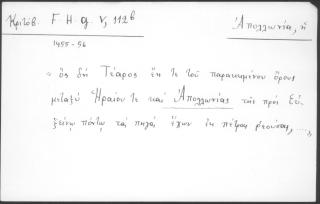 Κριτόβ. F H G V, 112b
Ἀπολλωνία, ἡ
1455-56
« ὃς δὴ Τέαρος ἔκ τε τοῦ παρακειμένου ὄρους
μεταξὺ Ἡραίου τε καὶ Ἀπολλωνίας τῆς πρὸς Εὐ-
ξείνῳ πόντῳ τὰς πηγὰς ἔχων ἐκ πέτρας ῥεούσας, ....,